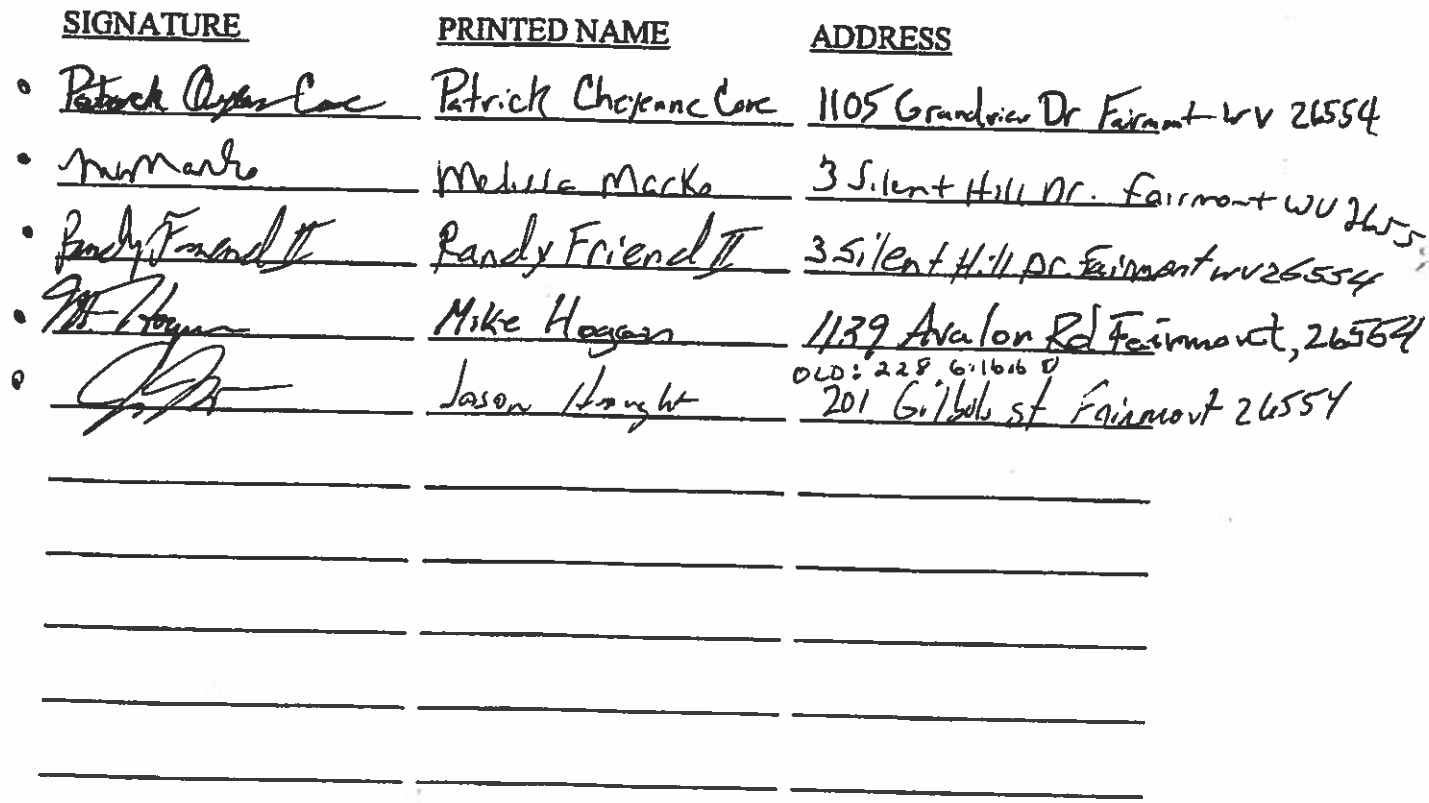 SIGNATURE PRINTED NAME ADDRESS
Patrick Patrick Cheyenne Core 1105 Grandview Dr Fairmont WV 26554
Marko Marko 3 Silent Hill Dr. Fairmont WV 2655
Randy Friend II Randy Friend II 3 Silent Hill Dr Fairmont WV 26554
Mike Hoggan 1139 Avalon Rd Fairmont, 26554
OLD: 228
Jason 201 st Fairmont 26554